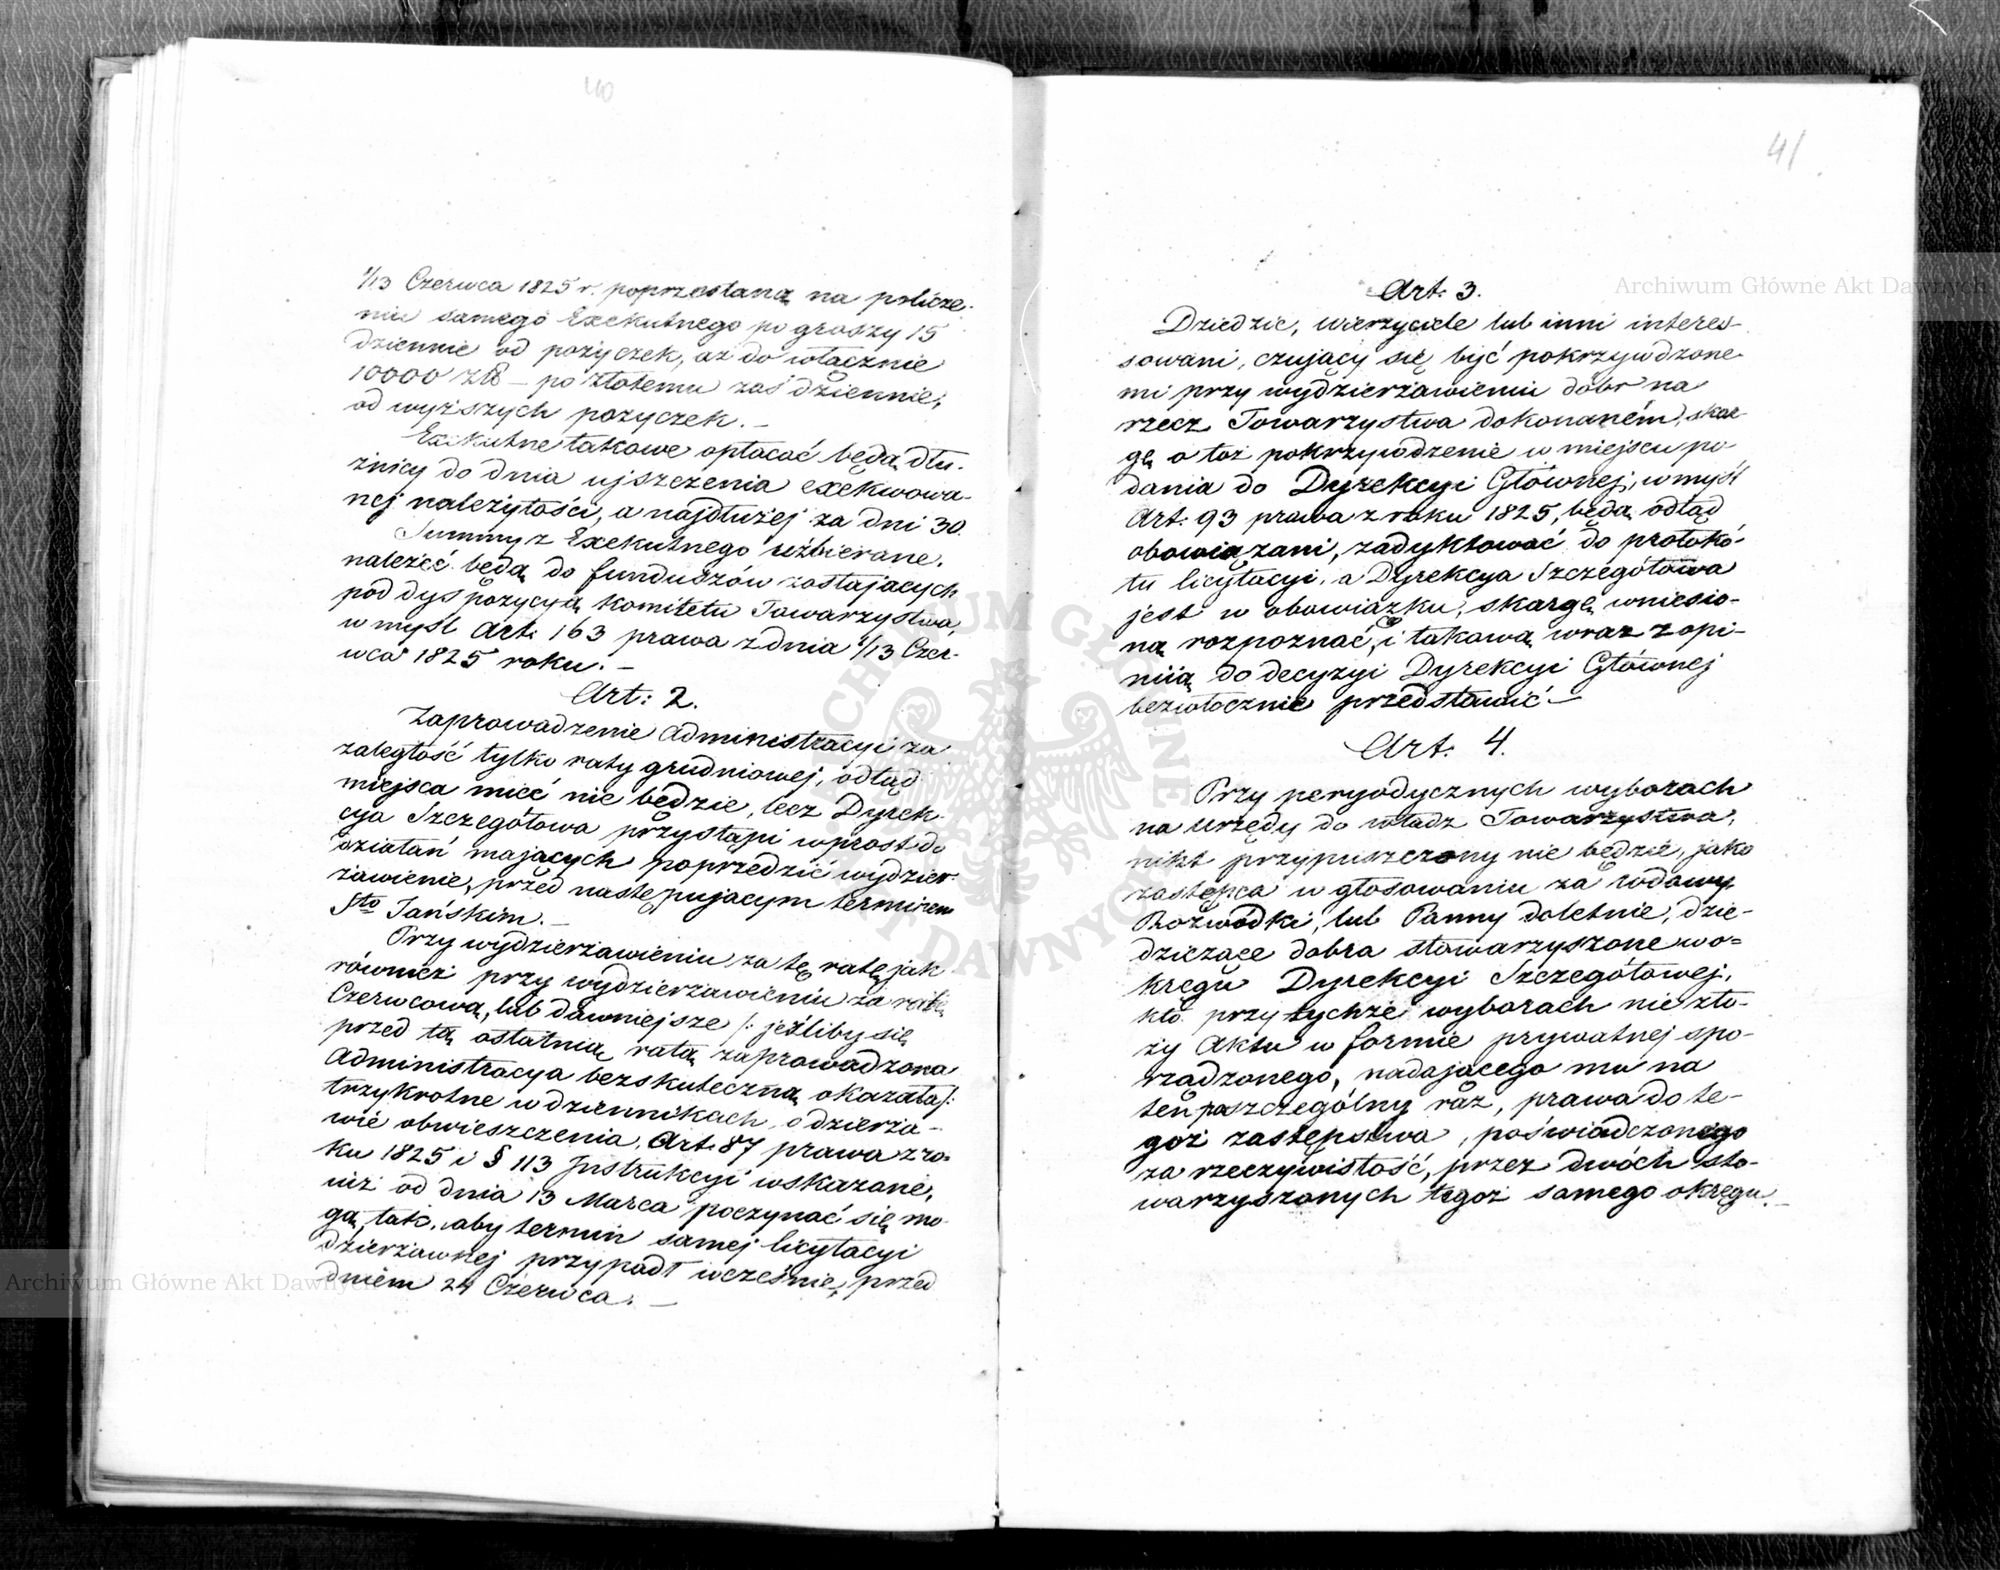 40
1/13 Czerwca 1825 r. poprzestaną na policze-
niu samego Exekutnego po groszy 15
dziennie od pożyczek, aż do włącznie
10000 zł – po złotemu zaś dziennie,
od wyższych pożyczek. –
Exekutne takowe opłacać będą dłu-
żnicy do dnia ujszczenia exekwowa-
nej należytości, a najdłużej za dni 30.
Summy z Exekutnego uzbierane,
należeć będą do funduszów zostających
pod dyspozycyą Komitetu Towarzystwa,
w myśl Art: 163 prawa z dnia 1/13 Czer-
wca 1825 roku. –
Art: 2.
Zaprowadzenie Administracyi za
zaległość tylko raty grudniowej, odtąd
miejsca mieć nie będzie, lecz Dyrek-
cya Szczegółowa przystąpi wprost do
działań mających poprzedzić wydzier-
żawienie, przed następującym terminem
Sto Jańskim. –
Przy wydzierżawieniu za tę ratę jak
również przy wydzierżawieniu za ratę
Czerwcową, lub dawniejsze /: jeźliby się
przed tą ostatnią ratą zaprowadzona
Administracya bezskuteczną okazała :/
trzykrotne w dziennikach o dzierża-
wie obwieszczenia, Art: 87 prawa z ro-
ku 1825 i § 113 Instrukcyi wskazane,
już od dnia 13 Marca poczynać się mo-
gą, tak, aby termin samej licytacyi
dzierżawnej przypadł wcześnie, przed
dniem 24 Czerwca. –
41
Art: 3.
Dziedzic, wierzyciele lub inni interes-
sowani, czujący się być pokrzywdzone-
mi przy wydzierżawieniu dóbr na
rzecz Towarzystwa dokonaném, skar-
gę o toż pokrzywdzenie w miejscu po-
dania do Dyrekcyi Głównej, w myśl
Art: 93 prawa z roku 1825, będą odtąd
obowiązani, zadyktować do protokó-
łu licytacyi, a Dyrekcya Szczegółowa
jest w obowiązku, skargę wniesio-
ną rozpoznać, i takową wraz z opi-
niią do decyzyi Dyrekcyi Głównej
bezwłocznie przedstawić. –
Art: 4.
Przy peryodycznych wyborach
na urzędy do władz Towarzystwa,
nikt przypuszczony nie będzie, jako
zastępca w głosowaniu za wdowy,
Rozwódki, lub Panny doletnie, dzie-
dziczące dobra stowarzyszone w o-
kręgu Dyrekcyi Szczegółowej,
kto przy tychże wyborach nie zło-
ży Aktu w formie prywatnej spo-
rządzonego, nadającego mu na
ten poszczególny raz, prawa do te-
goż zastępstwa, poświadczonego
za rzeczywistość, przez dwóch sto-
warzyszonych tegoż samego okręgu. –
Archiwum Główne Akt Dawnych
Archiwum Główne Akt Dawnych
ARCHIWUM GŁÓWNE AKT DAWNYCH